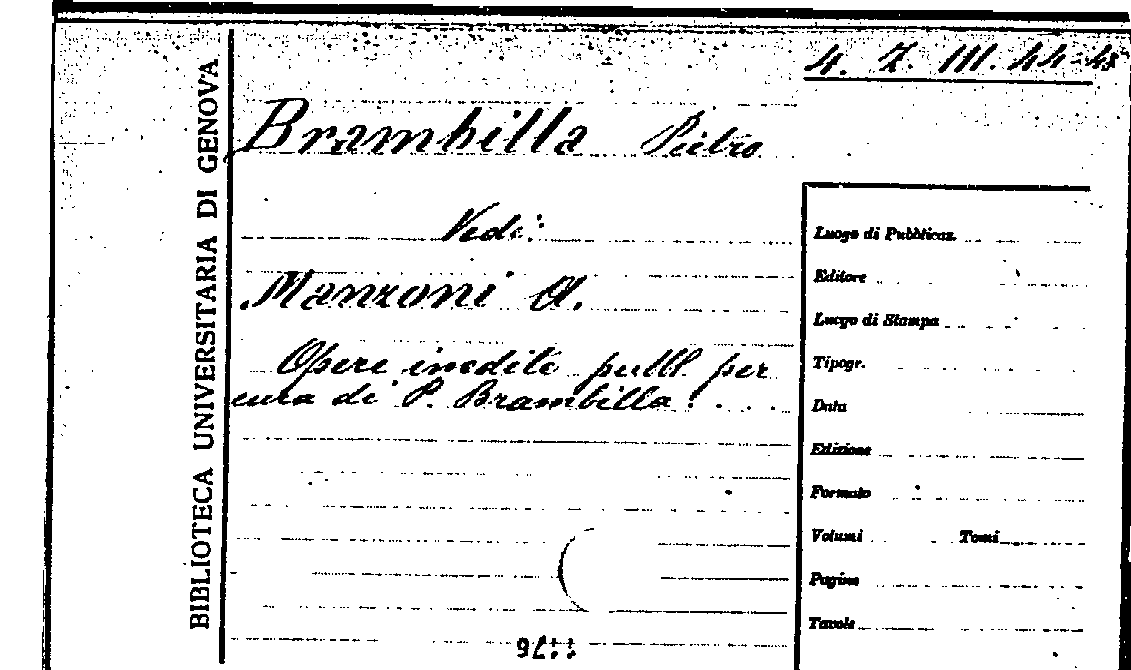 4. Z. III. 44-48
BIBLIOTECA UNIVERSITARIA DI GENOVA
Brambilla Pietro
Vedi:
Manzoni A.
Opere inedite pubbl. per
cura di P. Brambilla. . . .
Luogo di Pubblicaz.
Editore
Luogo di Stampa
Tipogr.
Data
Edizione
Formato
Volumi Tomi
Pagine
Tavole